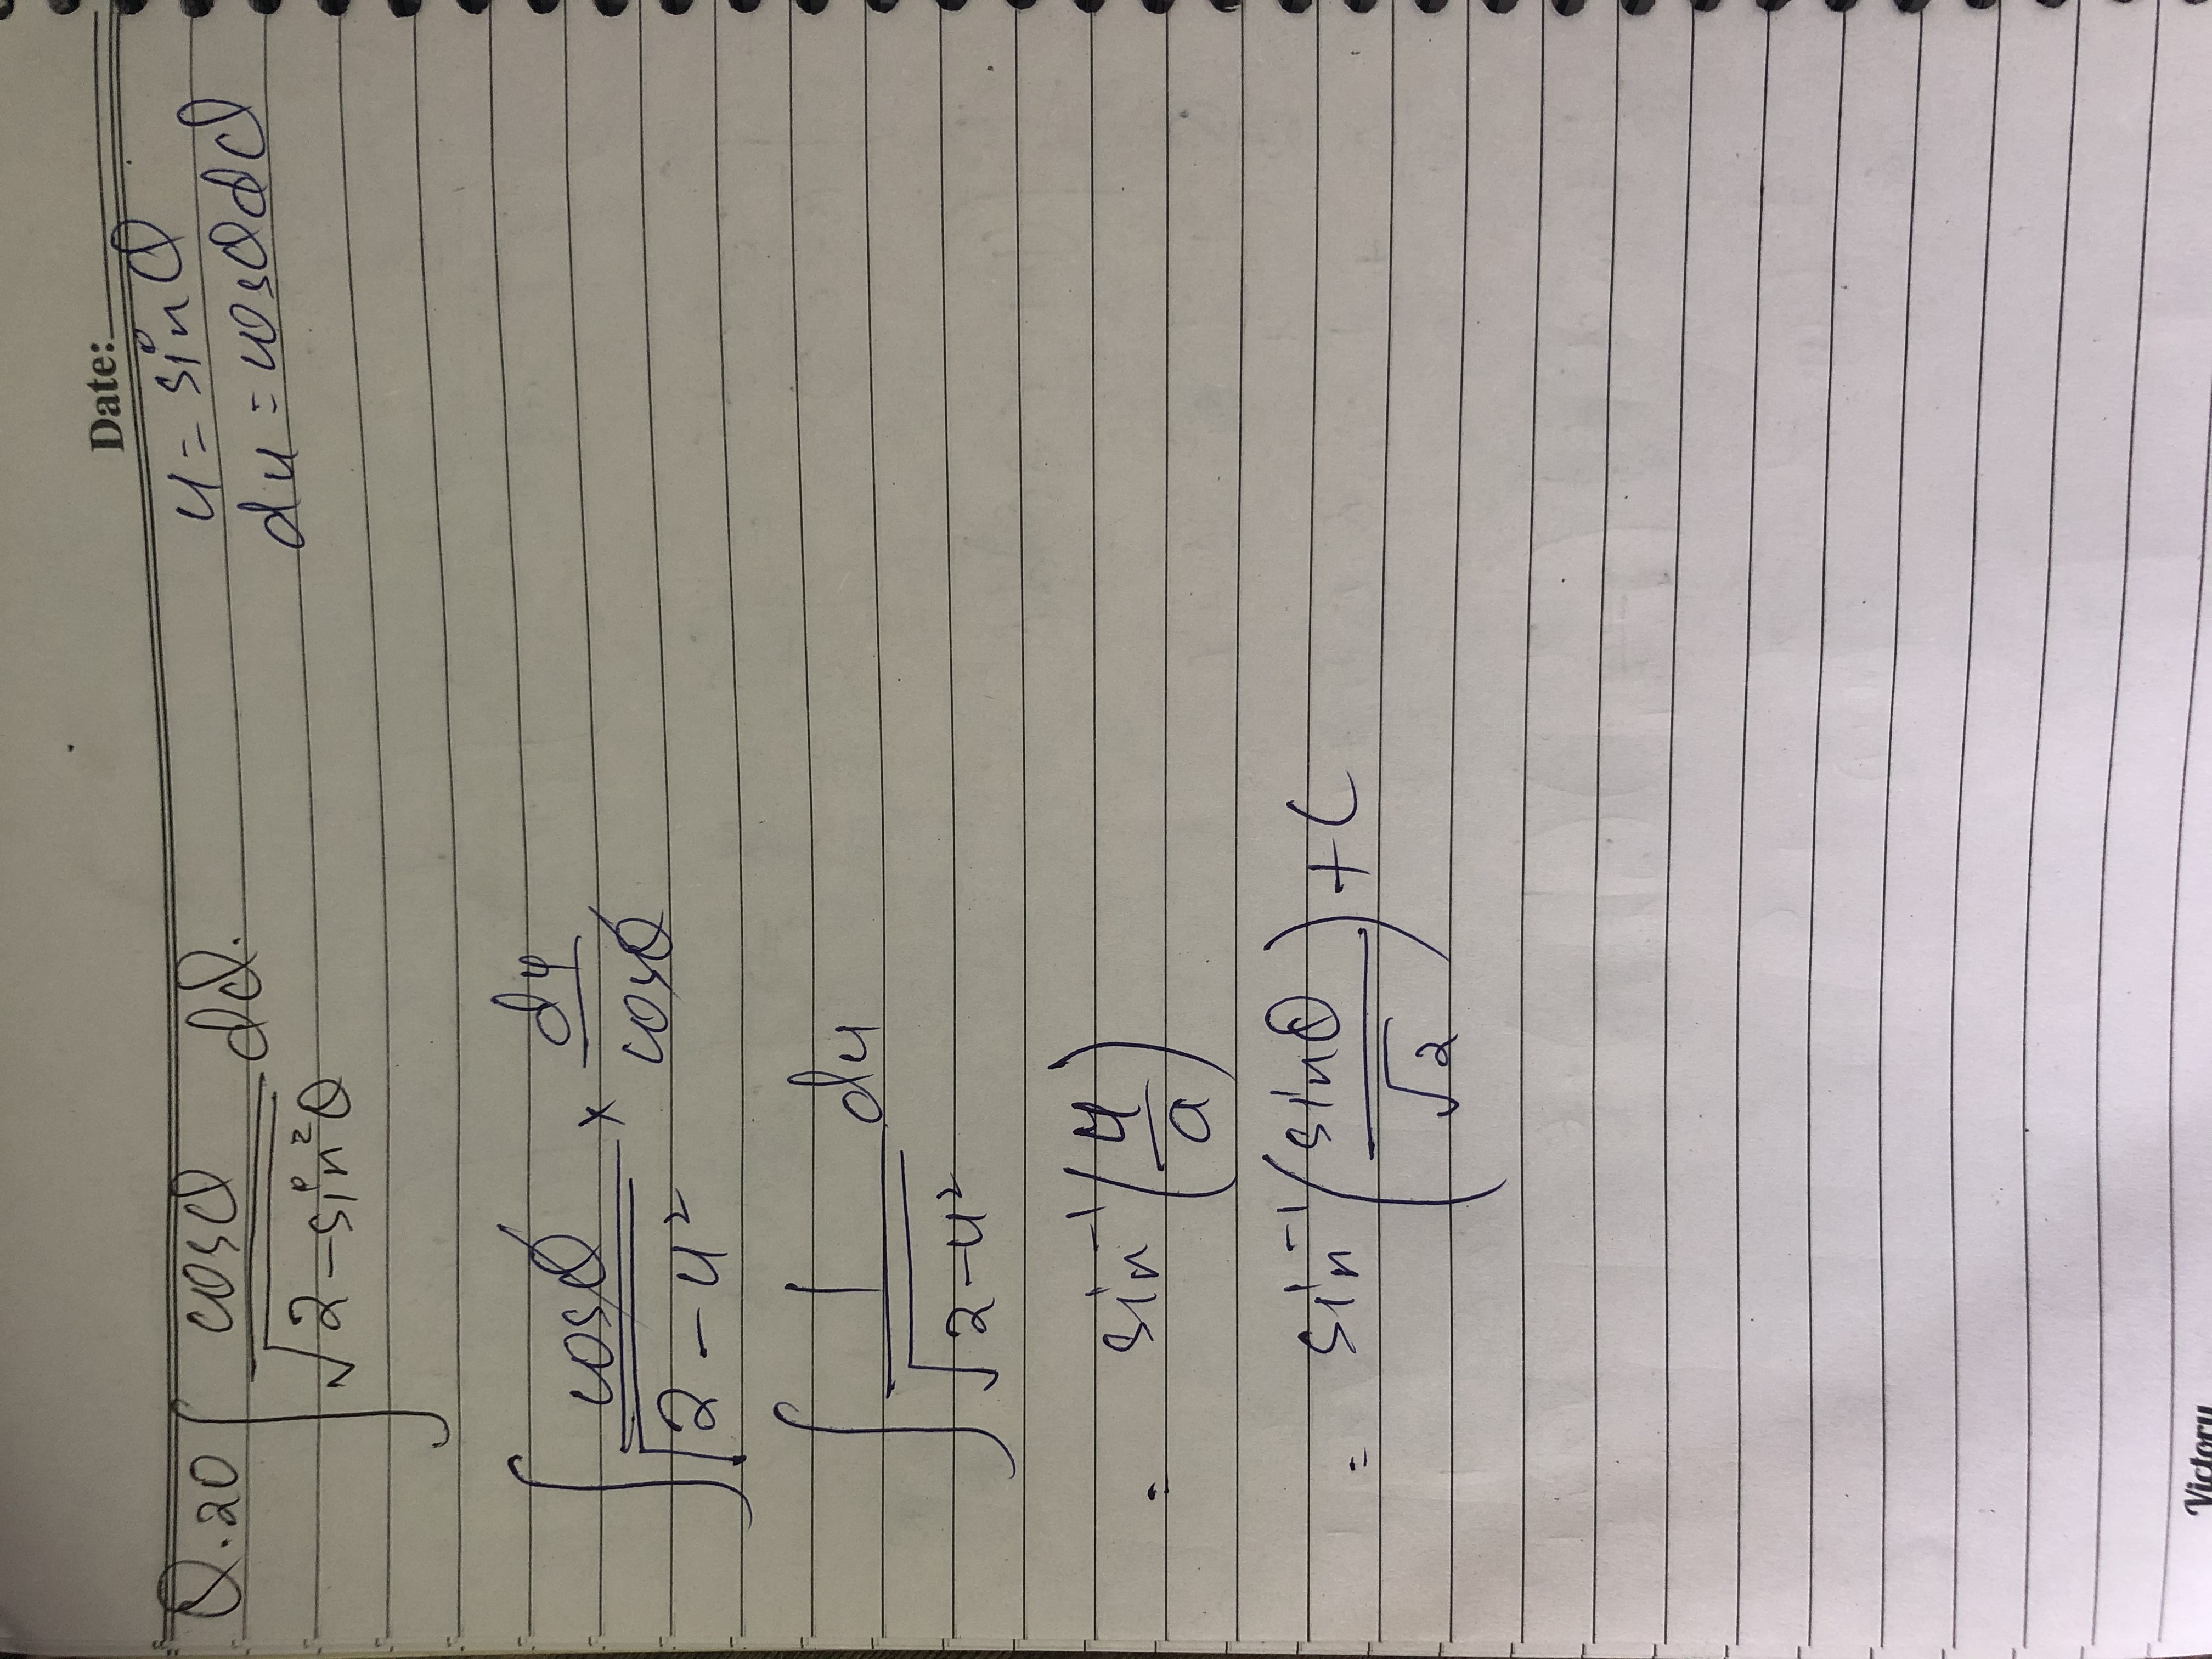 Date:
Q.20 ∫ cosθ / √(2-sin²θ) dθ.
u = sinθ
du = cosθdθ
∫ cosθ / √(2-u²) × du / cosθ
∫ 1 / √(2-u²) du
= sin⁻¹(u/a)
= sin⁻¹(sinθ/√2) + C
Victory